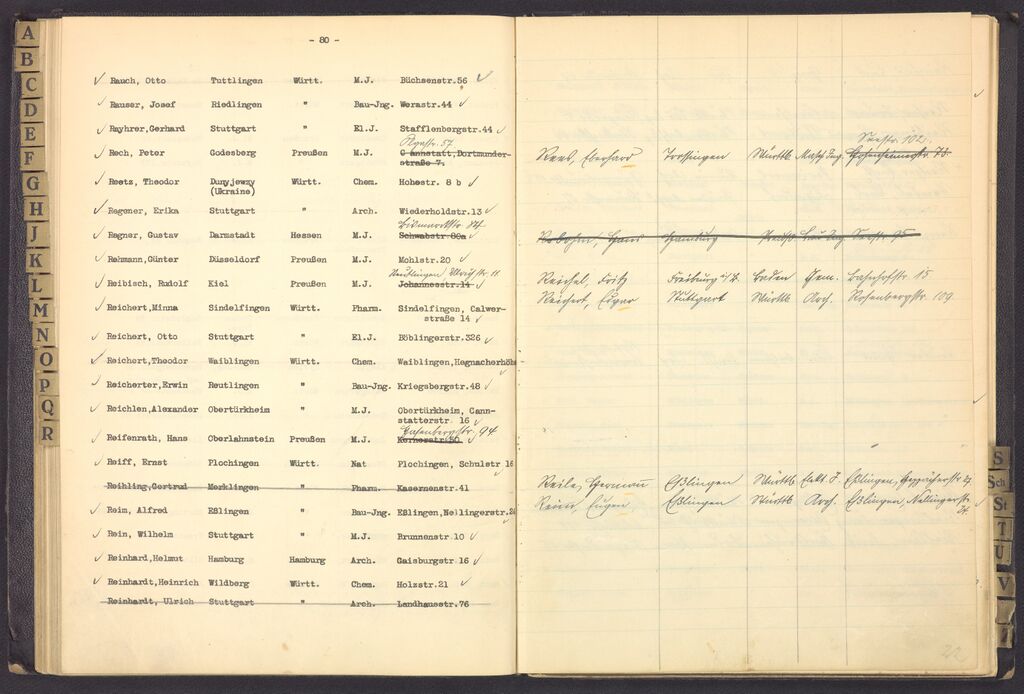 A
B
C
D
E
F
G
H
J
K
L
M
N
O
P
Q
R
- 80 -
✓ Rauch, Otto Tuttlingen Württ. M.J. Büchsenstr.56 ✓
✓ Rauser, Josef Riedlingen " Bau-Jng. Werastr.44 ✓
✓ Rayhrer,Gerhard Stuttgart " El.J. Stafflenbergstr.44 ✓
✓ Rech, Peter Godesberg Preußen M.J. Cannstatt,Dortmunder-
straße 7.
✓ Reetz, Theodor Dunyjewzy Württ. Chem. Hohestr. 8 b ✓
(Ukraine)
✓ Regener, Erika Stuttgart " Arch. Wiederholdstr.13 ✓
Bismarckstr. 84
✓ Regner, Gustav Darmstadt Hessen M.J. Schwabstr.80a ✓
✓ Rehmann,Günter Düsseldorf Preußen M.J. Mohlstr.20 ✓
Reutlingen Ulrichstr. 11
✓ Reibisch, Rudolf Kiel Preußen M.J. Johannesstr.14 ✓
✓ Reichert,Minna Sindelfingen Württ. Pharm. Sindelfingen, Calwer-
straße 14 ✓
✓ Reichert, Otto Stuttgart " El.J. Böblingerstr.326 ✓
✓ Reichert,Theodor Waiblingen Württ. Chem. Waiblingen,Hegnacherhöhe
✓ Reicherter,Erwin Reutlingen " Bau-Jng. Kriegsbergstr.48 ✓
✓ Reichlen,Alexander Obertürkheim " M.J. Obertürkheim, Cann-
statterstr. 16 ✓
Hasenbergstr. 94
✓ Reifenrath, Hans Oberlahnstein Preußen M.J. Kernerstr.50 ✓
✓ Reiff, Ernst Plochingen Württ. Nat Plochingen, Schulstr 16
Reihling,Gertrud Merklingen " Pharm. Kasernenstr.41
✓ Rein, Alfred Eßlingen " Bau-Jng. Eßlingen,Nellingerstr.24
✓ Rein, Wilhelm Stuttgart " M.J. Brunnenstr.10 ✓
✓ Reinhard,Helmut Hamburg Hamburg Arch. Gaisburgstr.16 ✓
✓ Reinhardt,Heinrich Wildberg Württ. Chem. Holzstr.21 ✓
Reinhardt, Ulrich Stuttgart " Arch. Landhausstr.76
Seestr. 102.
Rees, Eberhard Trossingen Württb. Masch Ing.
Hamburg Seestr. 95
Reichel, Fritz Freiburg i/B. Baden Bahnhofstr. 15
Reichert, Edgar Stuttgart Württb. Arch. Rosenbergstr. 109.
Reile, Hermann Eßlingen Württb. Elekt. J. Eßlingen,
Reim, Eugen Eßlingen Württb. Arch. Eßlingen, Nellingerstr.
24.
22
S
Sch
St
T
U
V